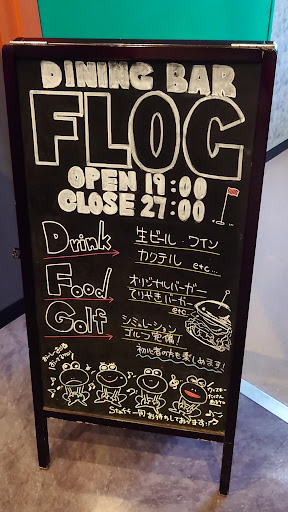 DINING BAR
FLOC
OPEN 19:00
CLOSE 27:00
Drink
生ビール・ワイン
カクテル
etc...
Food
オリジナルバーガー
てりやきバーガー
etc
Golf
シミュレーション
ゴルフ完備!
初心者の方も楽しめます!
Staff一同お待ちしております!